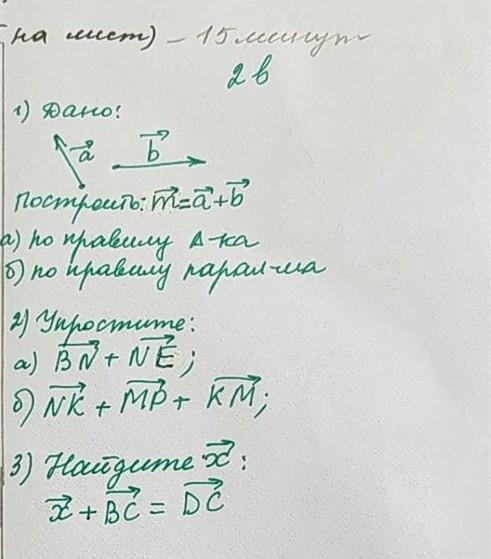 на лист) – 15 минут
2 в
1) Дано:
a⃗ b⃗
Построить: m⃗ = a⃗ + b⃗
а) по правилу Δ-ка
б) по правилу парал-ма
2) Упростите:
а) BN⃗ + NE⃗ ;
б) NK⃗ + MP⃗ + KM⃗ ;
3) Найдите x⃗ :
x⃗ + BC⃗ = DC⃗